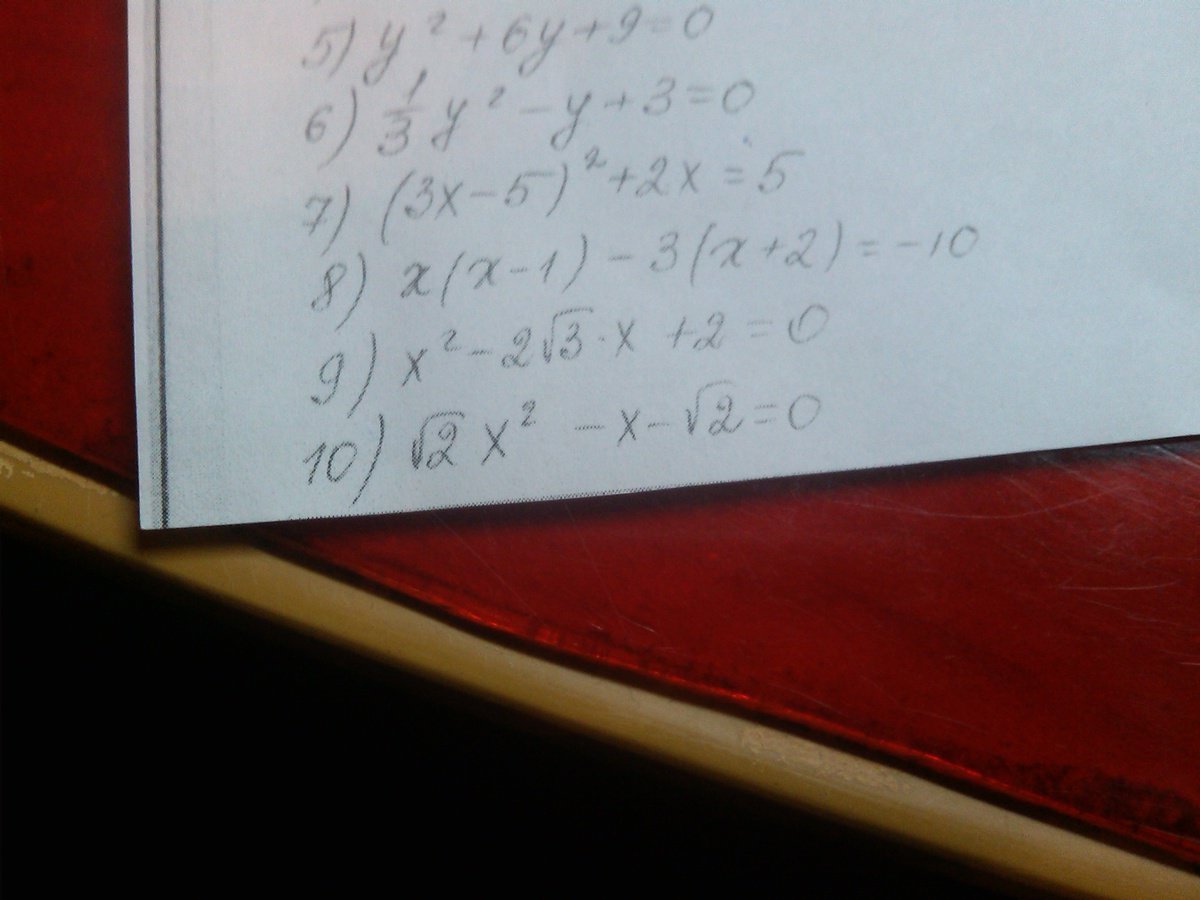 5) y² + 6y + 9 = 0
6) 1/3 y² - y + 3 = 0
7) (3x - 5)² + 2x = 5
8) x(x - 1) - 3(x + 2) = -10
9) x² - 2√3 · x + 2 = 0
10) √2 x² - x - √2 = 0